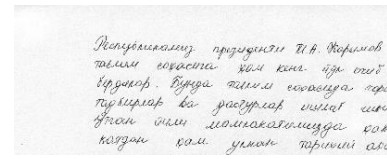 Республикамиз президенти И.А. Каримов
таълим соҳасига ҳам кенг йўл очиб
бердилар. Бунда таълим соҳасида
тадбирлар ва дастурлар ишлаб
ўтган йили мамлакатимизда
жатдан ҳам улкан тарихий